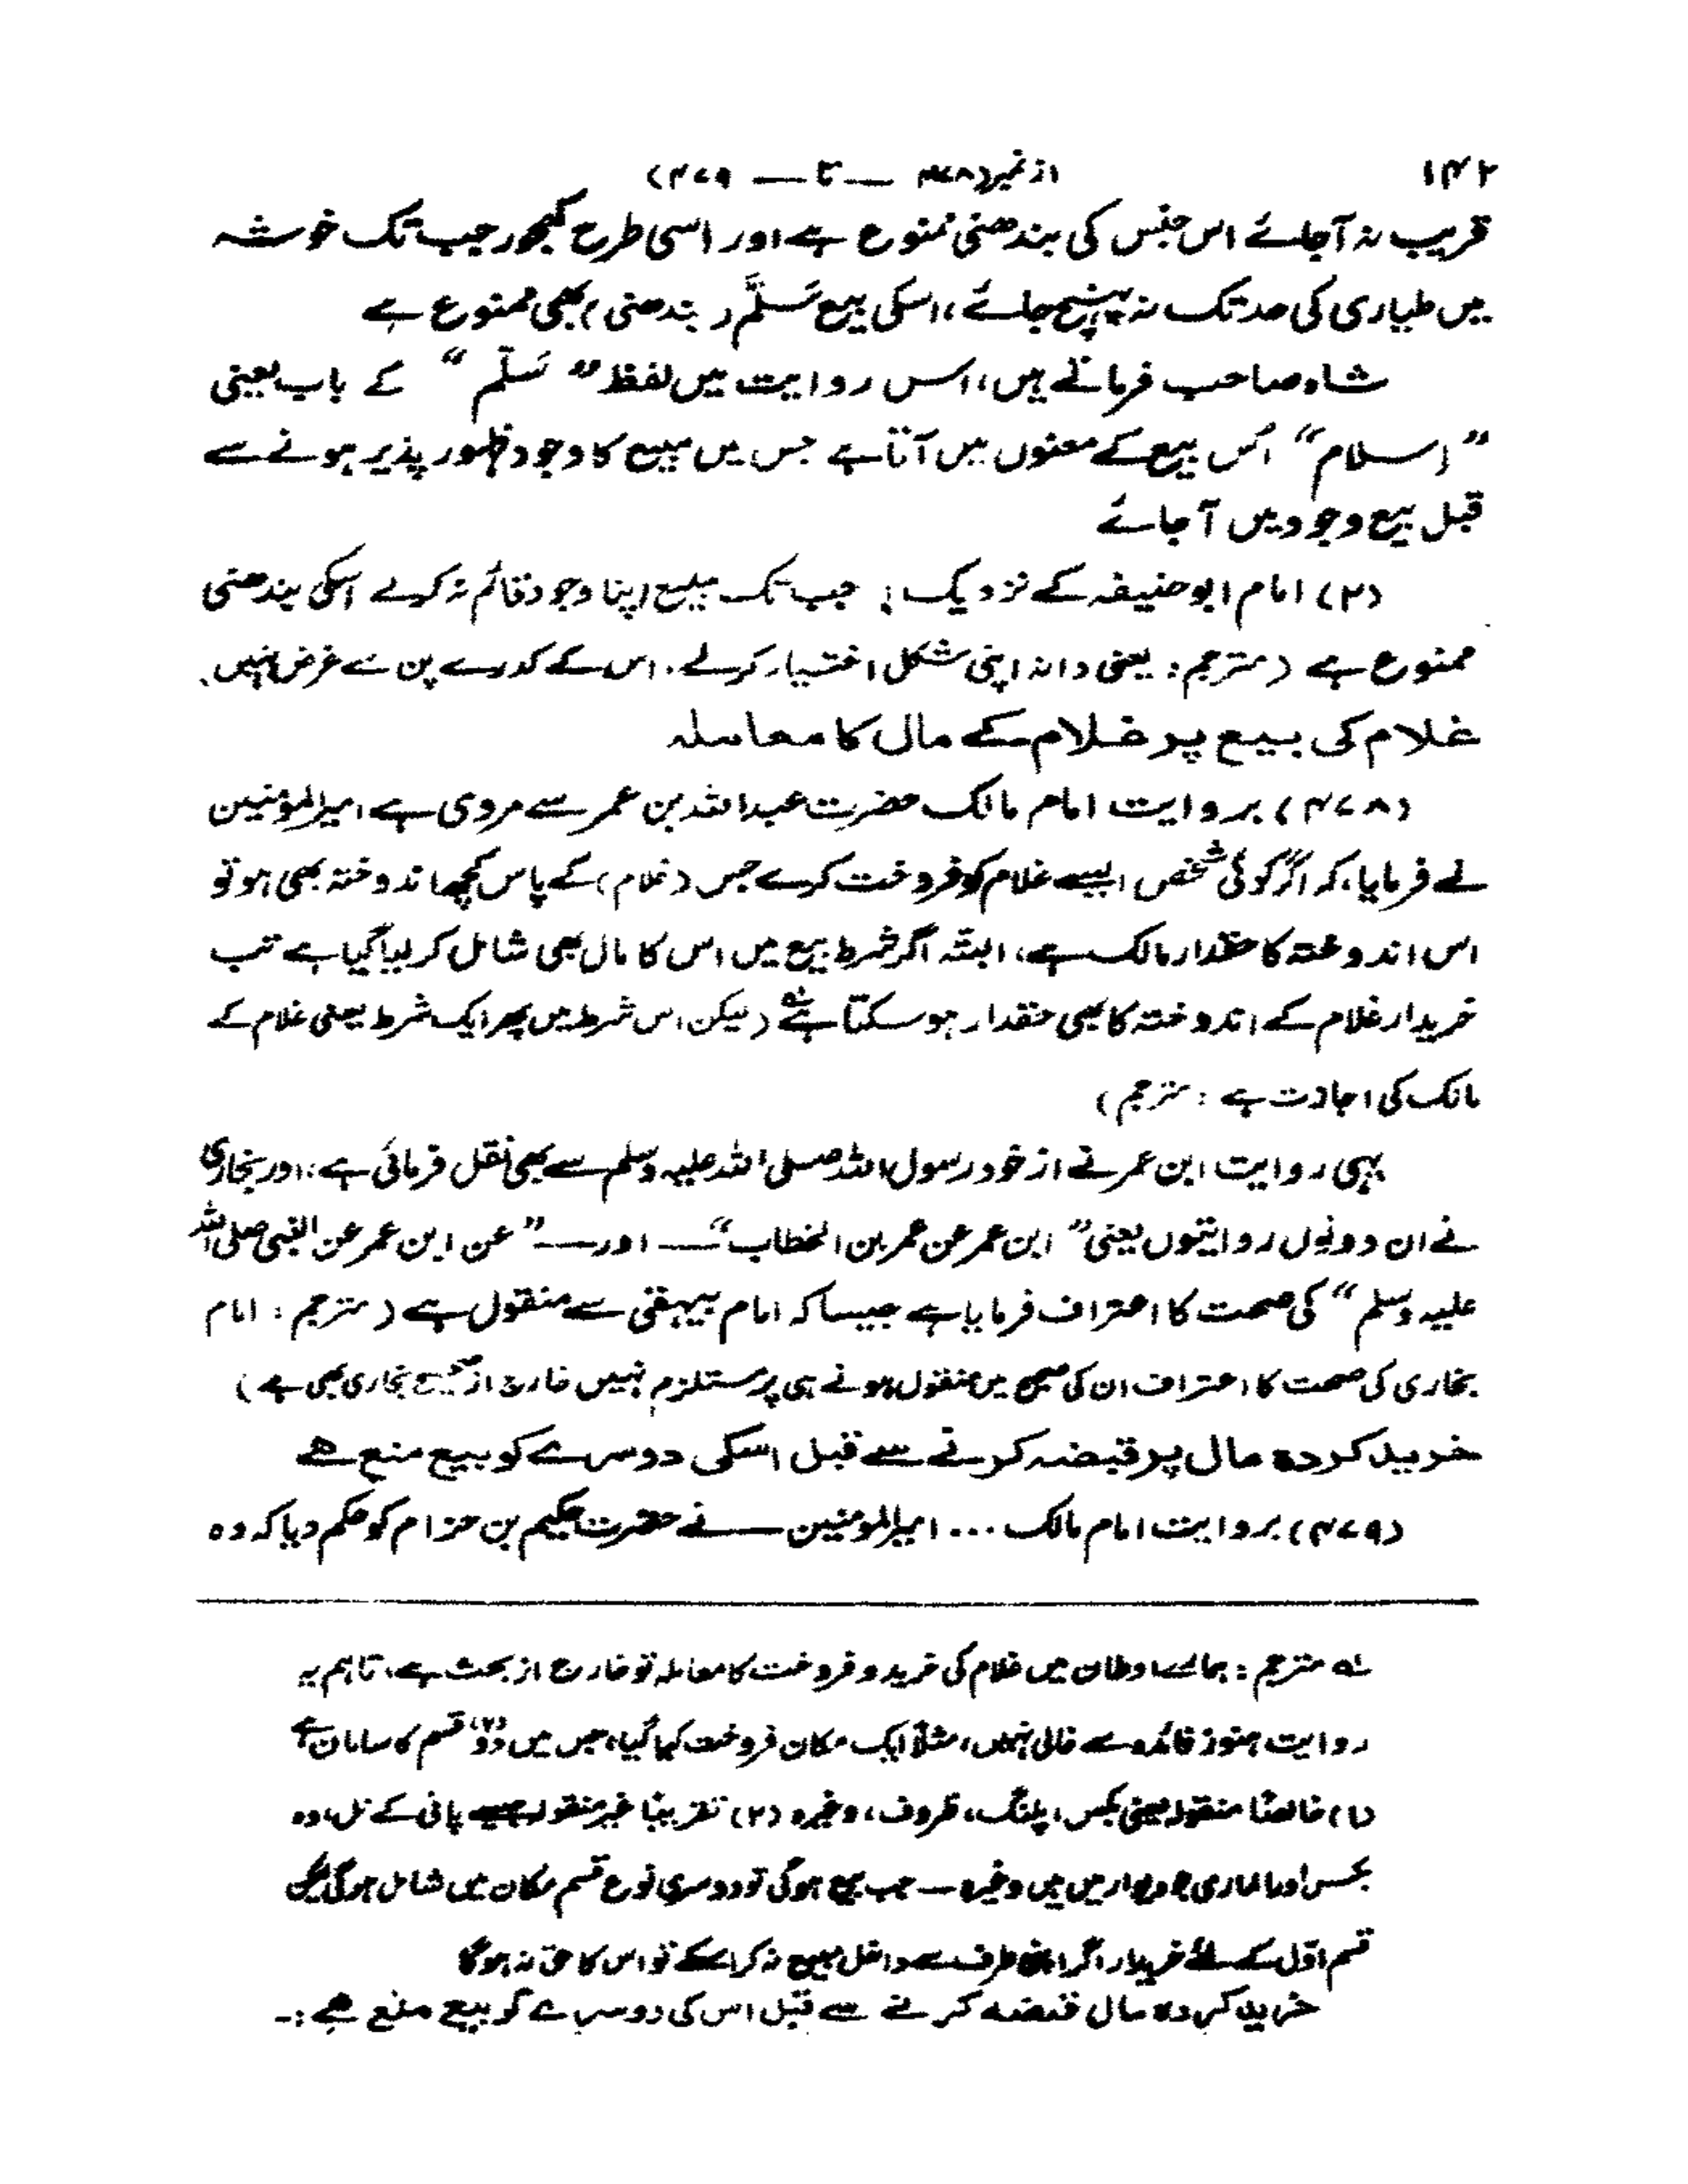 ۱۴۲
از نمبر (۴۷۸ — تا — ۴۷۹)
قریب نہ آجائے اس جنس کی بندھنی ممنوع ہے اور اسی طرح کھجور جب تک خوشہ
میں طیاری کی حد تک نہ پہنچ جائے، اسکی بیع سَلَّم (بندھنی) بھی ممنوع ہے
شاہ صاحب فرماتے ہیں، اس روایت میں لفظ ”سَلّم“ کے باب یعنی
”اسلام“ اُس بیع کے معنوں میں آتا ہے جس میں مبیع کا وجود ظہور پذیر ہونے سے
قبل بیع وجود میں آ جائے
(۲) امام ابو حنیفہ کے نزدیک: جب تک مبیع اپنا وجود قائم نہ کرلے اسکی بندھنی
ممنوع ہے (مترجم: یعنی دانہ اپنی شکل اختیار کرلے۔ اس کے کدرے پن سے غرض نہیں۔
غلام کی بیع پر غلام کے مال کا معاملہ
(۴۷۸) بروایت امام مالک حضرت عبداللہ بن عمر سے مروی ہے امیرالمؤمنین
نے فرمایا، کہ اگر کوئی شخص ایسے غلام کو فروخت کرے جس (غلام) کے پاس کچھ اندوختہ بھی ہو تو
اس اندوختہ کا حقدار مالک ہے، البتّہ اگر شرط بیع میں اس کا مال بھی شامل کر لیا گیا ہے تب
خریدار غلام کے اندوختہ کا بھی حقدار ہو سکتا ہے؂۱ (لیکن اس شرط میں پھر ایک شرط یعنی غلام کے
مالک کی اجازت ہے : مترجم)
یہی روایت ابن عمر نے از خود رسول اللہ صلی اللہ علیہ وسلم سے بھی نقل فرمائی ہے، اور بخاری
نے ان دونوں روایتوں یعنی ”ابن عمر عن عمر بن الخطاب“ — اور — ”عن ابن عمر عن النبی صلی اللہ
علیہ وسلم“ کی صحت کا اعتراف فرمایا ہے جیسا کہ امام بیہقی سے منقول ہے (مترجم : امام
بخاری کی صحت کا اعتراف ان کی صحیح میں منقول ہونے ہی پر مستلزم نہیں خارج از صحیح بخاری بھی ہے)
خرید کردہ مال پر قبضہ کرنے سے قبل اسکی دوسرے کو بیع منع ہے
(۴۷۹) بروایت امام مالک ... امیرالمومنین — نے حضرت حکیم بن حزام کو حکم دیا کہ وہ
؂۱ مترجم : ہمارے اوطان میں غلام کی خرید و فروخت کا معاملہ تو خارج از بحث ہے، تاہم یہ
روایت ہنوز فائدہ سے خالی نہیں، مثلاً ایک مکان فروخت کیا گیا، جس میں دو (۲) قسم کا سامان ہے
(۱) خالصًا منقولہ یعنی بکس، پلنگ، ظروف، وغیرہ (۲) تقریبًا غیر منقولہ جیسے پانی کے نل، وہ
بکس اور الماری جو دیوار میں ہیں وغیرہ — جب بیع ہوگی تو دوسری نوع قسم مکان میں شامل ہوگی لیکن
قسم اوّل کے لئے خریدار اگر اپنی طرف سے داخل مبیع نہ کرا سکے تو اس کا حق نہ ہوگا
خرید کردہ مال قبضہ کرنے سے قبل اس کی دوسرے کو بیع منع ہے :-